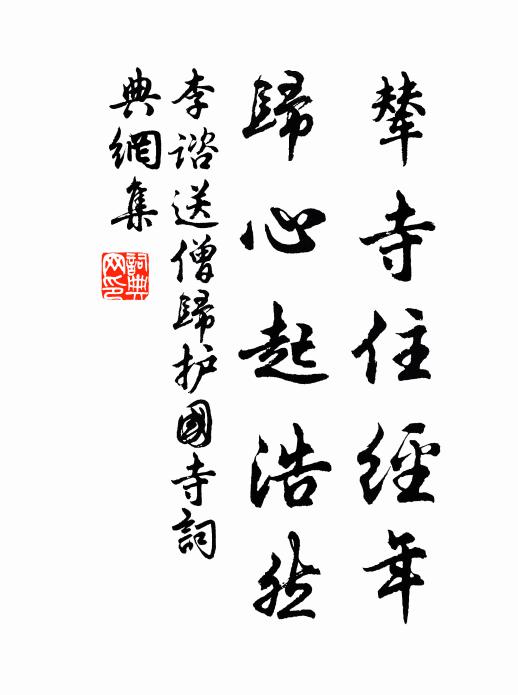 輦寺住經年
歸心起浩然
李諮送僧歸护國寺詞
典網集
詞典
网印